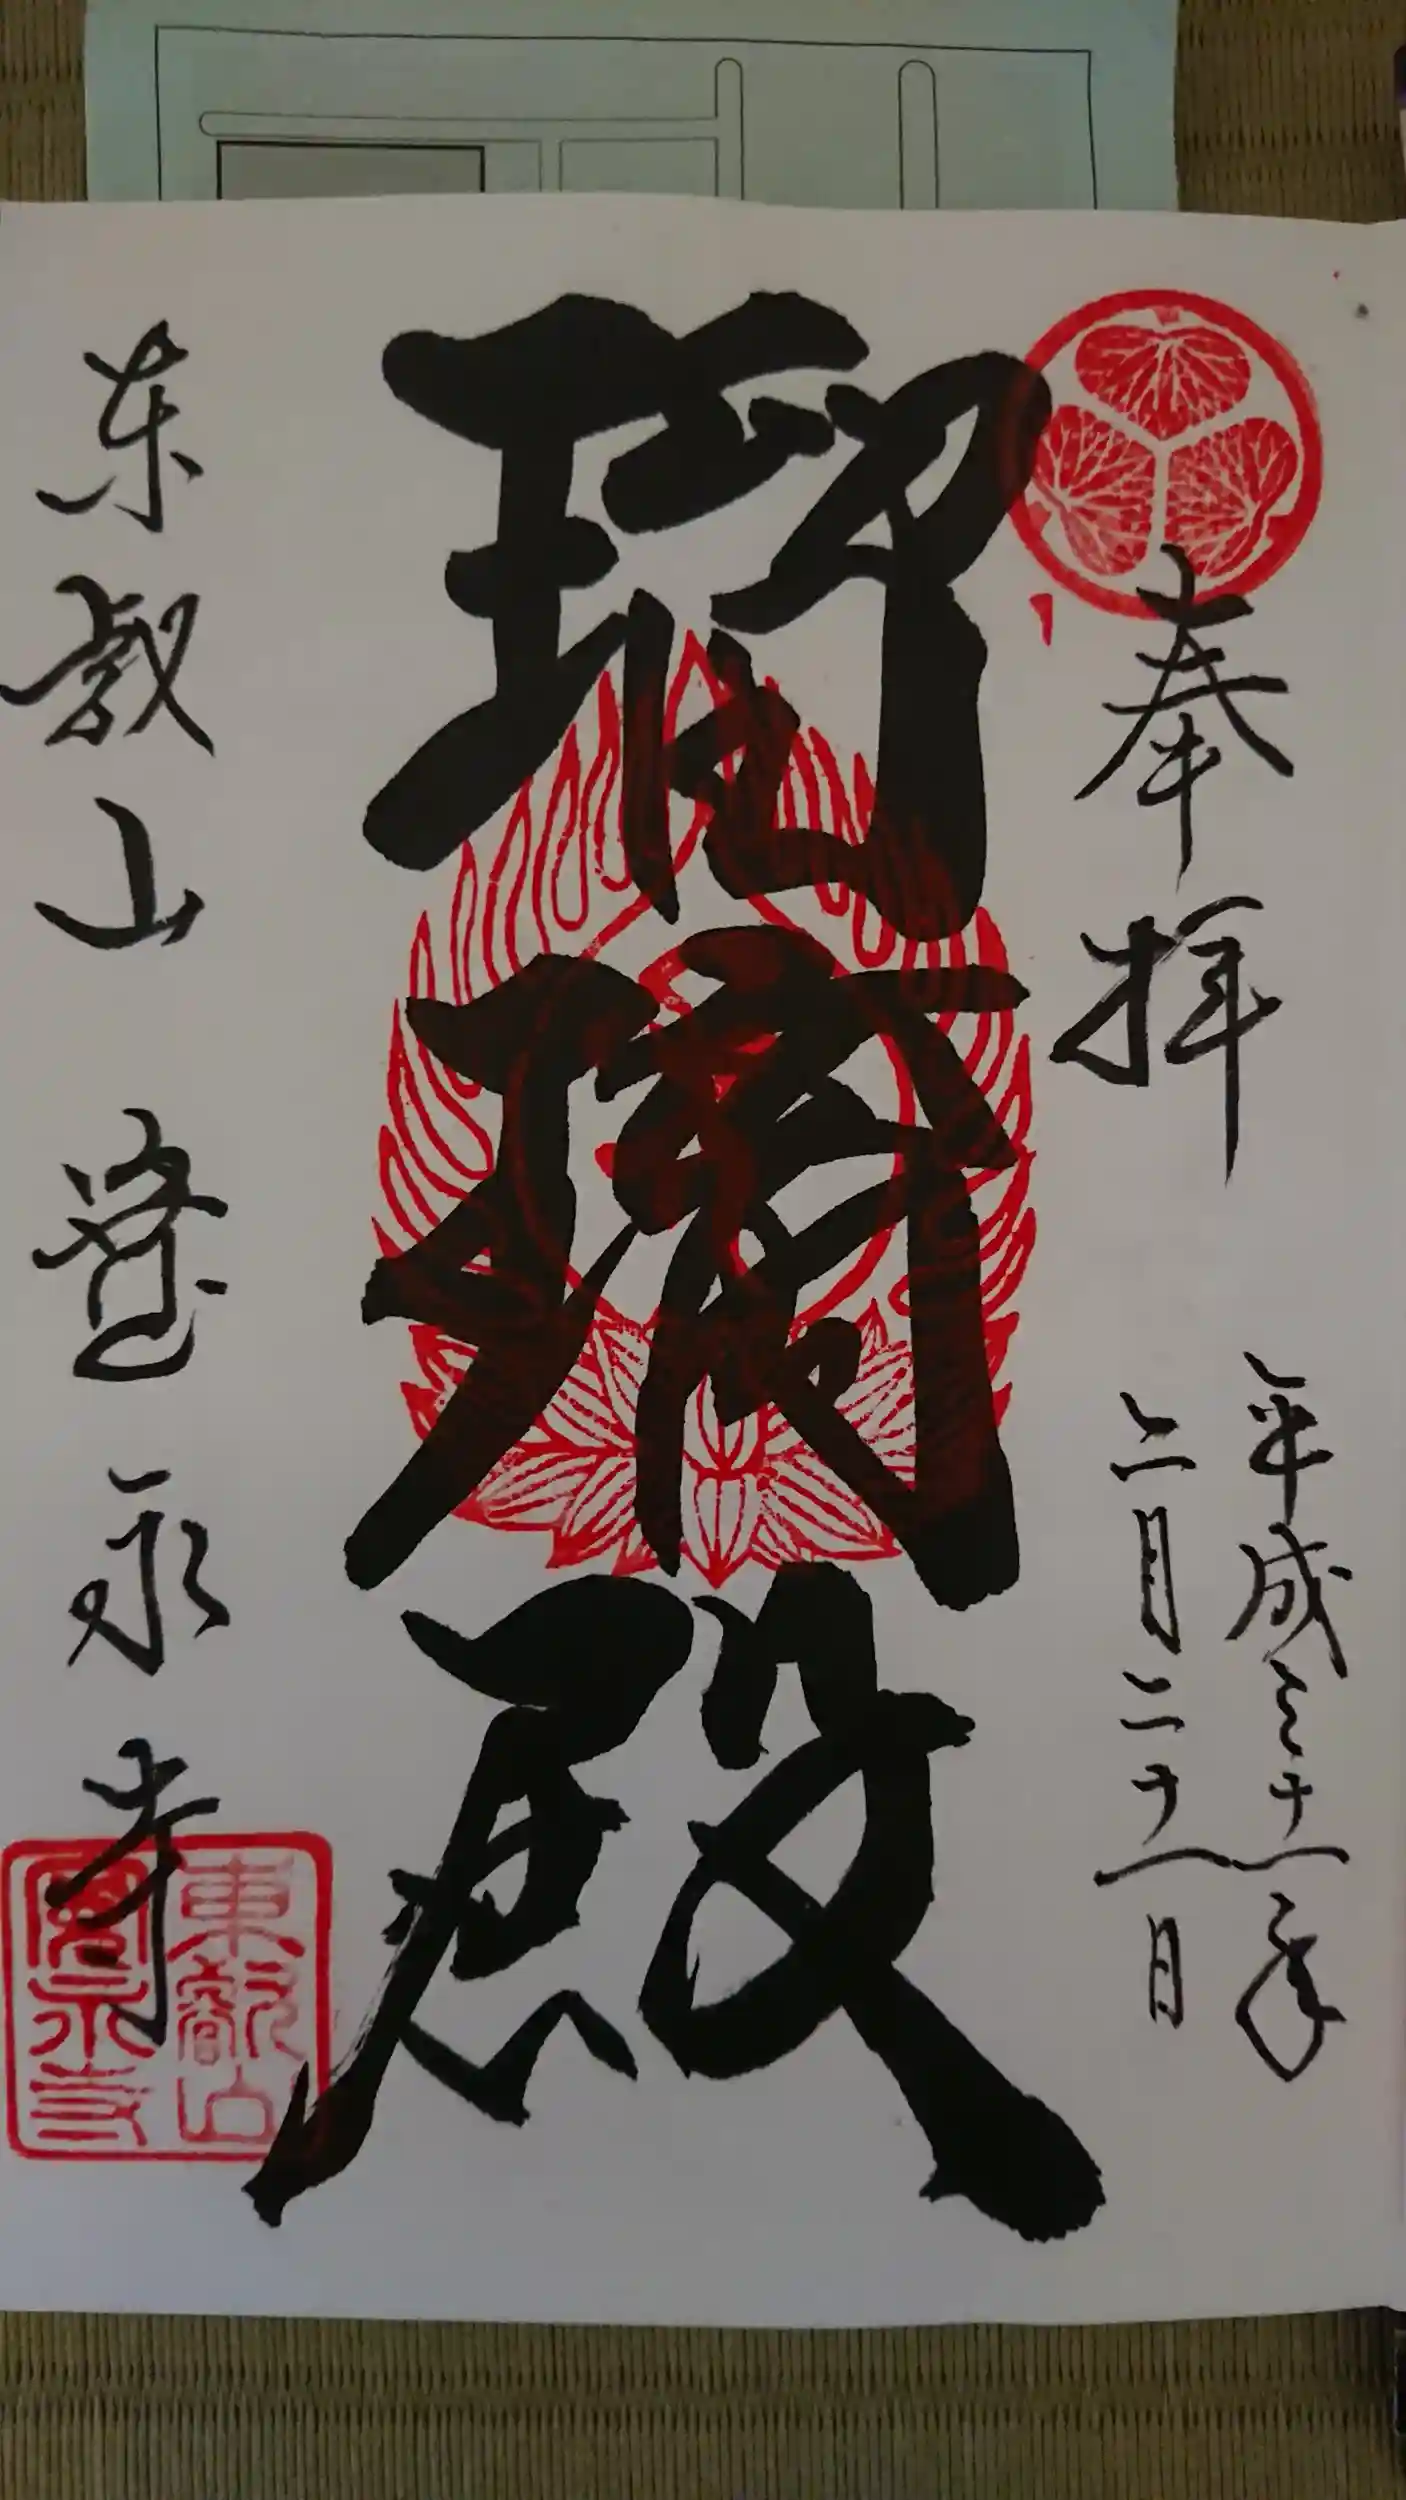 奉拝
平成三十一年
三月二十一日
瑠璃殿
東叡山 寛永寺
東叡山
寛永寺